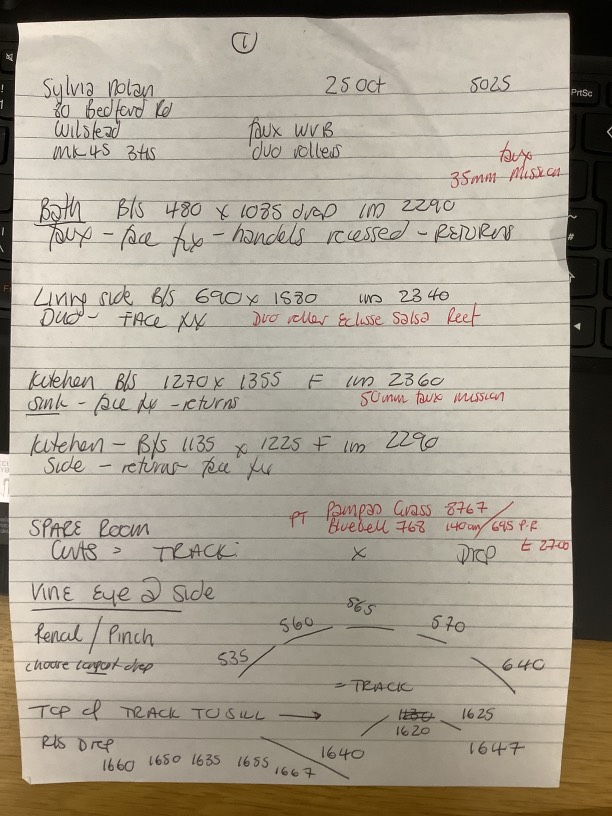 1
Sylvia Nolan 25 Oct 5025
80 Bedford Rd
Wilstead faux WVB
MK45 3HS duo rollers
faux
35mm Mission
Bath B/S 480 x 1085 drop 1m 2290
faux - face fix - handels recessed - RETURNS
Living side B/S 690 x 1580 1m 2340
Duo - FACE XX Duo roller Eclisse Salsa Reef
Kitchen B/S 1270 x 1355 F 1m 2360
Sink - face fix - returns 50mm faux mission
Kitchen - B/S 1135 x 1225 F 1m 2290
Side - returns face fix
PT Pampas Grass 8767 /
SPARE ROOM Bluebell 768 140cm/695 P.R
Cuts = TRACK x Drop £ 2700
Vine Eye @ side
Pencal / Pinch 535 560 565 570 640
choose longest drop
= TRACK
TOP of TRACK TO SILL → 1640 1620 1625 1647
R/S Drop
1660 1650 1635 1655 1667